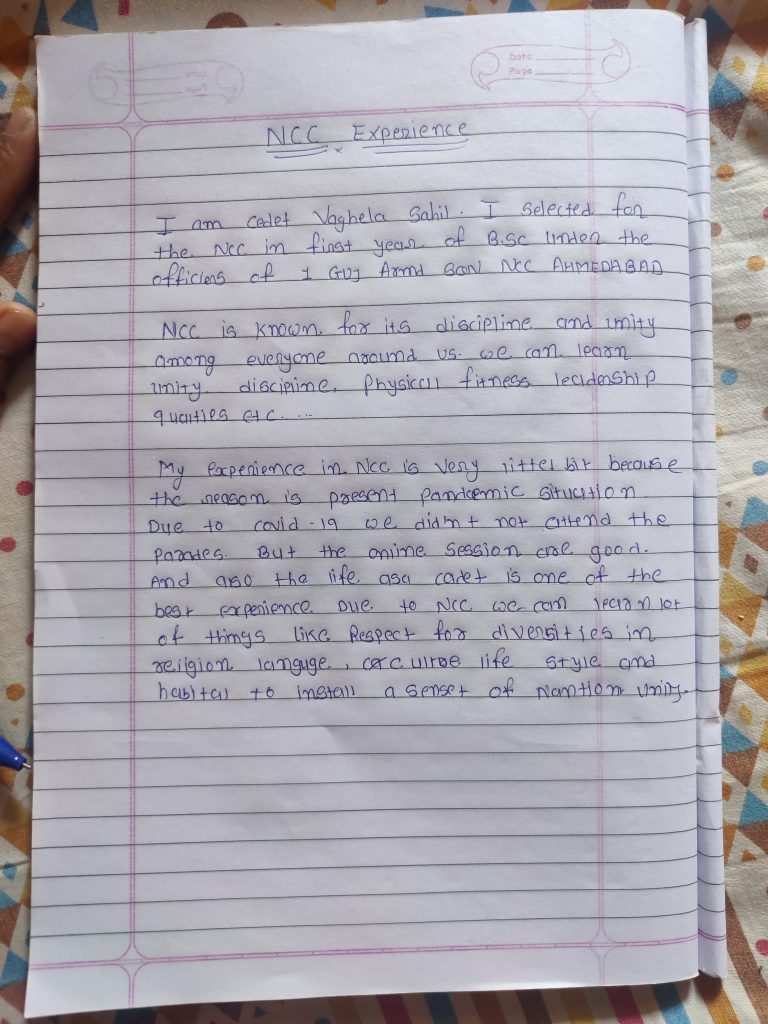 Date
Page
NCC Experience
I am cadet Vaghela Sahil. I selected for
the NCC in first year of B.Sc under the
officiers of 1 GUJ Armd SQN NCC AHMEDABAD
NCC is known for its discipline and unity
among everyone around us. we can learn
unity, discipline, Physical fitness leadership
qualities etc. ...
My experience in NCC is very littel bit because
the reason is present pandcemic situation.
Due to covid-19 we didn't not attend the
Parades. But the onine session are good.
And also the life asa cadet is one of the
best experience Due to NCC we can learn lot
of things like Respect for diversities in
religion languge, life style and
habital to install a senset of Nantion unity.